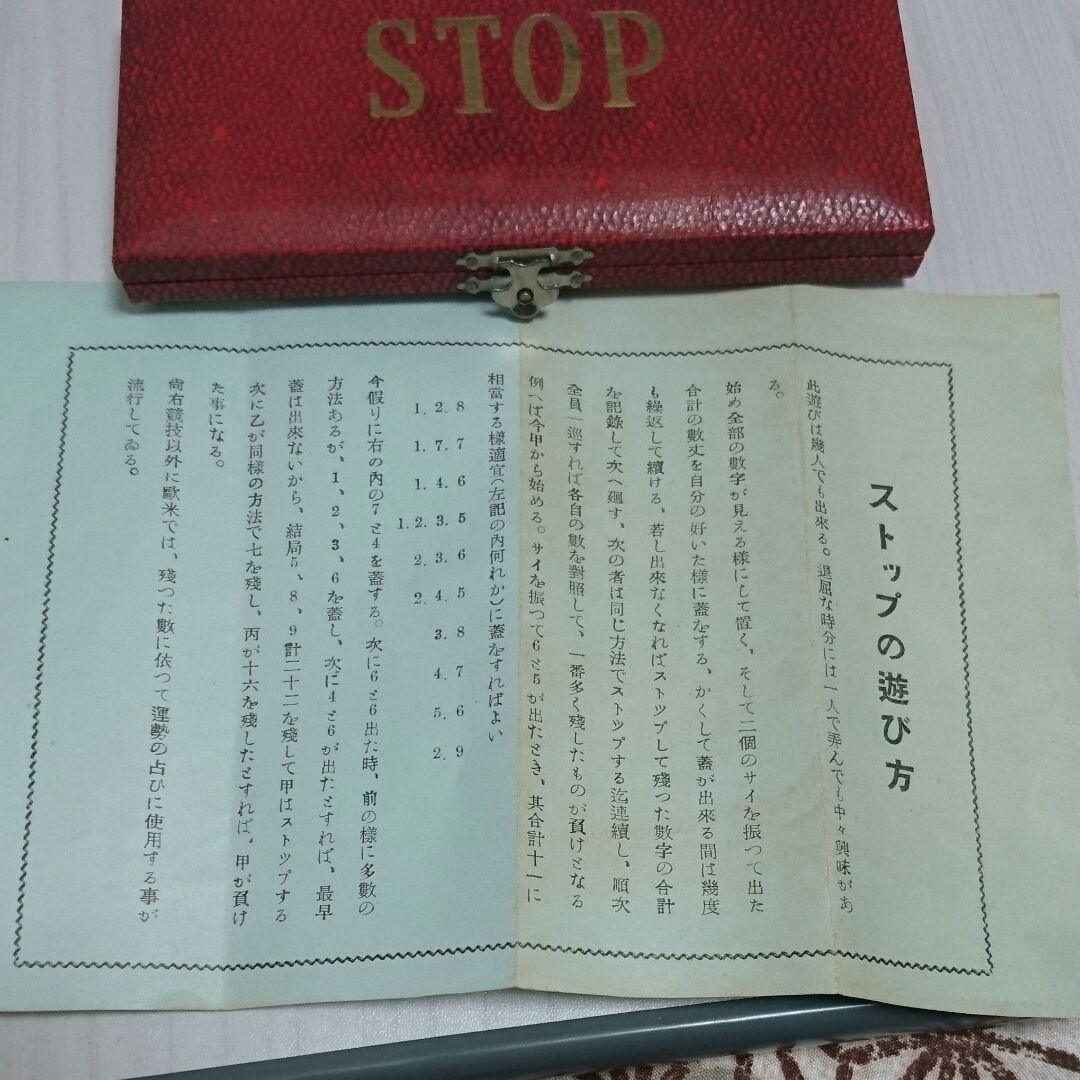 STOP
ストップの遊び方
此遊びは幾人でも出來る。退屈な時分には一人で弄んでも中々興味があ
る。
始め全部の數字が見える樣にして置く、そして二個のサイを振つて出た
合計の數丈を自分の好いた樣に蓋をする、かくして蓋が出來る間は幾度
も繰返して續ける、若し出來なくなればストツプして殘つた數字の合計
を記錄して次へ廻す、次の者は同じ方法でストツプする迄連續し、順次
全員一巡すれば各自の數を對照して、一番多く殘したものが負けとなる
例へば今甲から始める。サイを振つて6と5が出たとき、其合計十一に
相當する樣適宜(左記の內何れか)に蓋をすればよい
1. 2. 8
1. 7. 7
1. 4. 6
1. 2. 3. 5
2. 3. 6
2. 4. 5
3. 8
4. 7
5. 6
2. 9
今假りに右の內の7と4を蓋する。次に6と6出た時、前の樣に多數の
方法あるが、1、2、3、6を蓋し、次に4と6が出たとすれば、最早
蓋は出來ないから、結局5、8、9計二十二を殘して甲はストツプする
次に乙が同樣の方法で七を殘し、丙が十六を殘したとすれば、甲が負け
た事になる。
尙右競技以外に歐米では、殘つた數に依つて運勢の占ひに使用する事が
流行してゐる。